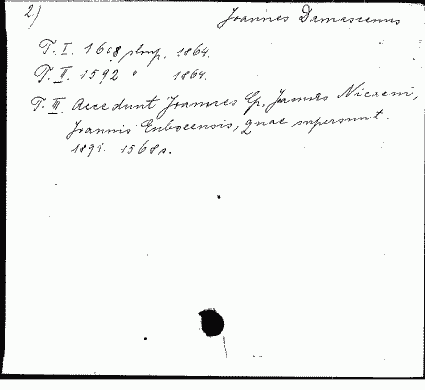 2) Joannes Damascenus
T. I. 1608 plmp. 1864.
T. II. 1592 " 1864.
T. III. Accedunt Joannes Ep. Joannis Nicaeni,
Joannis Euboeensis, quae supersunt.
1891. 1568 s.